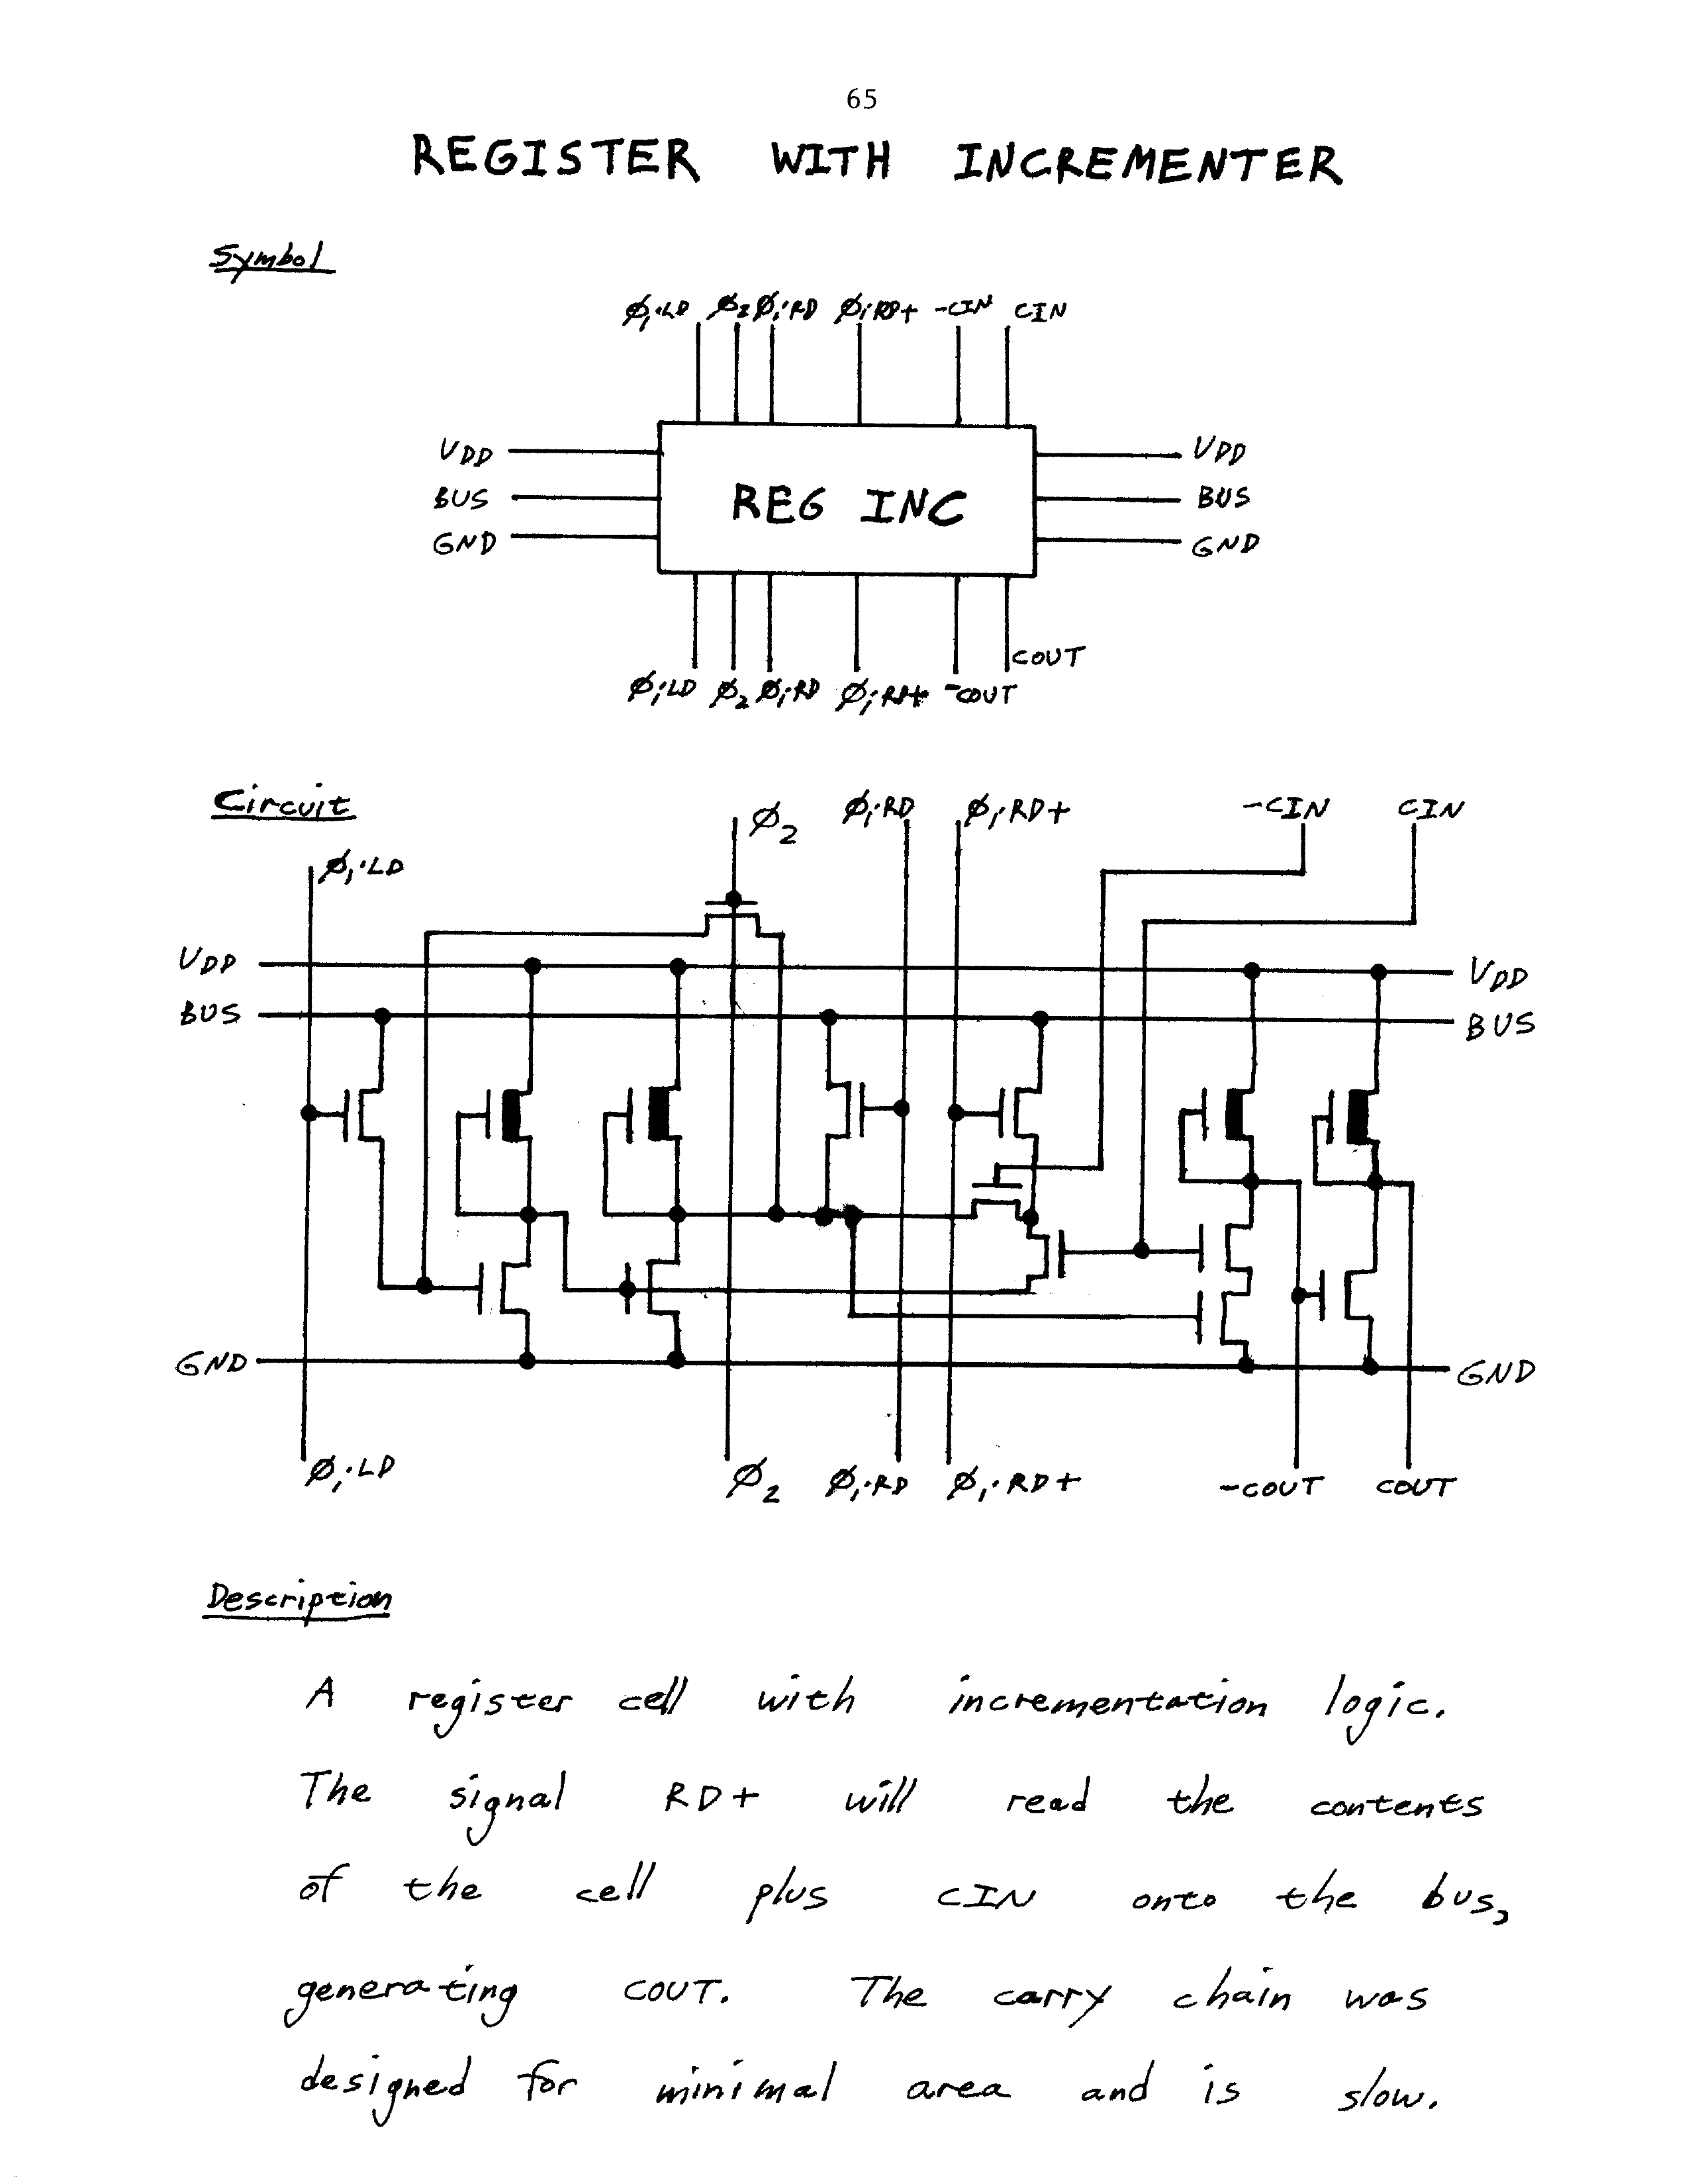 65
REGISTER WITH INCREMENTER
Symbol
Ø₁·LD Ø₂ Ø₁·RD Ø₁·RD+ -CIN CIN
VDD VDD
BUS REG INC BUS
GND GND
COUT
Ø₁·LD Ø₂ Ø₁·RD Ø₁·RD+ -COUT
Circuit
Ø₂ Ø₁·RD Ø₁·RD+ -CIN CIN
Ø₁·LD
VDD VDD
BUS BUS
GND GND
Ø₁·LD Ø₂ Ø₁·RD Ø₁·RD+ -COUT COUT
Description
A register cell with incrementation logic.
The signal RD+ will read the contents
of the cell plus CIN onto the bus,
generating COUT. The carry chain was
designed for minimal area and is slow.